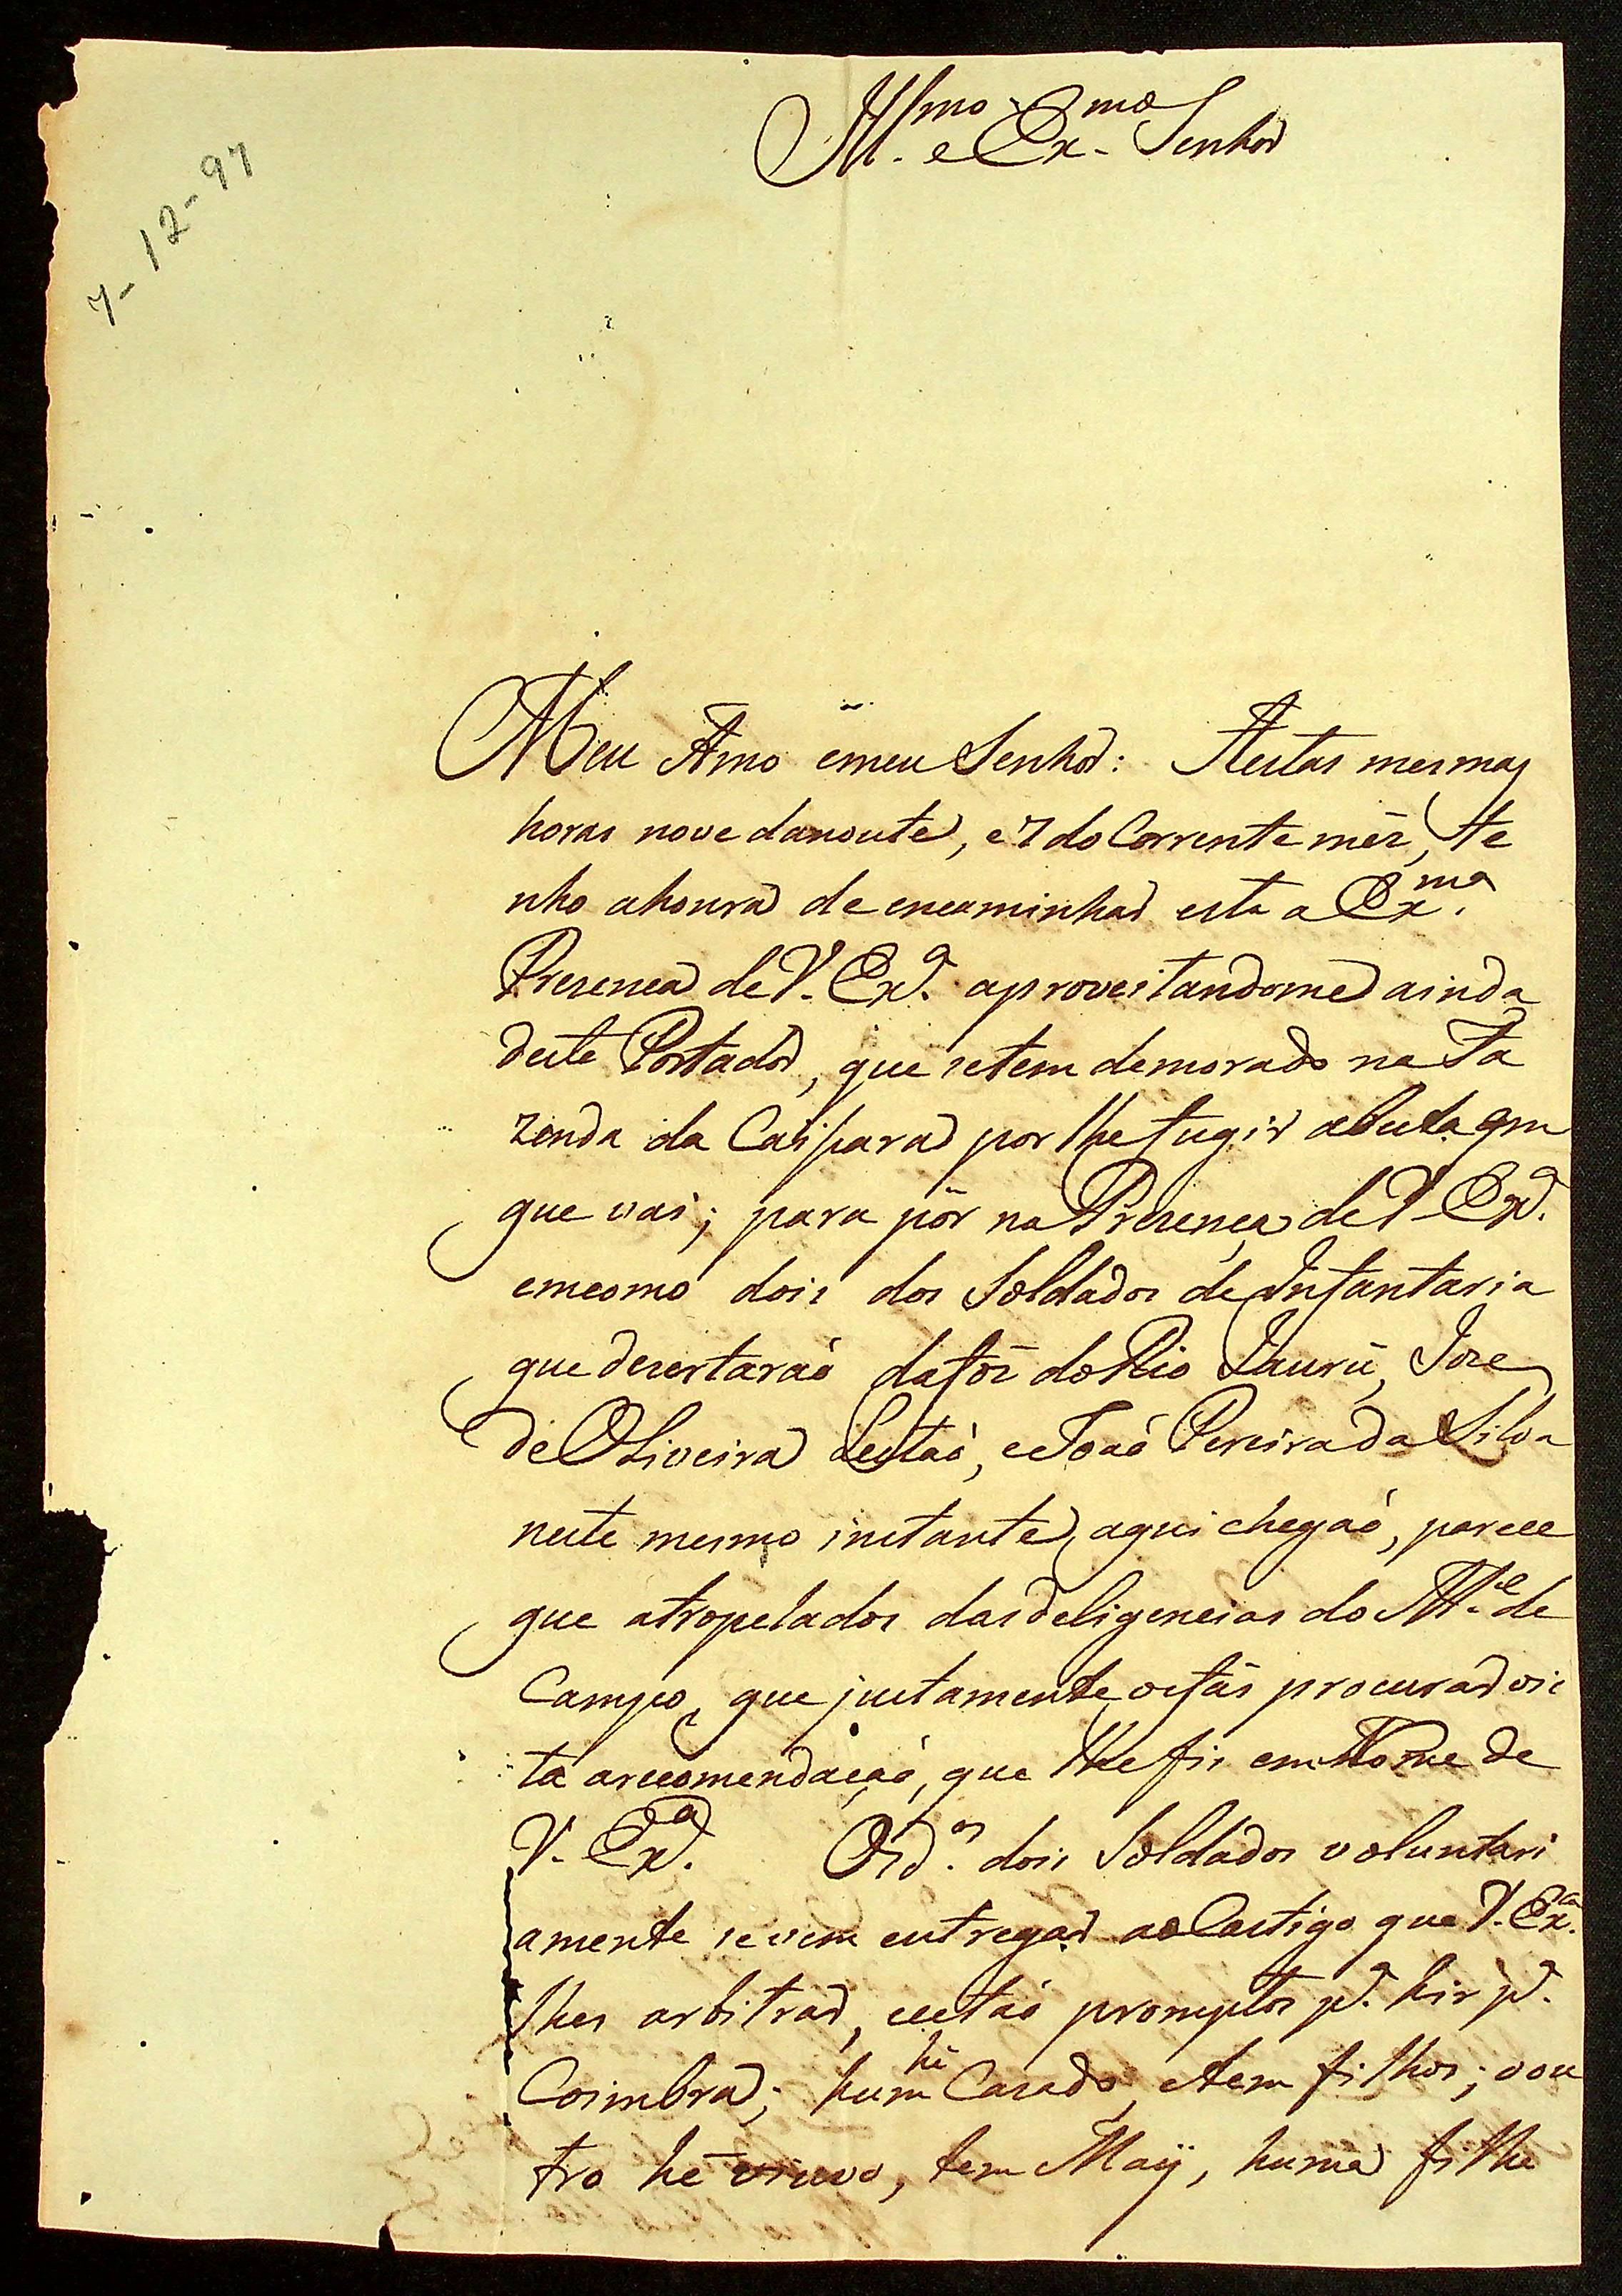 7-12-97
Ill.mo e Ex.mo Senhor
Meu Amo emeu Senhor: Aestas mesmas
horas nove danoute, e 7 do Corrente mês, te
nho ahonra de encaminhar esta a Ex.ma
Presenca de V. Ex.a aproveitandome ainda
deste Portador, que setem demorado na Fa
zenda da Caissara por lhe fugir abesta em
que vai; para pôr na Presença de V Ex.a
emcomo dois dos Soldados de Infantaria
que desertaraõ dafôs do Rio Jaurú, Jose
de Oliveira Leitaõ, e Joaõ Pereira da Silva
neste mesmo instante, aqui chegaõ, parece
que atropelados das deligencias do M.e de
Campo, que justamente osfás procurar vis
ta arecomendaçaõ, que lhe fis em Nome de
V. Ex.a Os d.os dois Soldados voluntari
amente sevem entregar ao Castigo que V. Ex.a
lhes arbitrar, eestaõ promptos p.a hir p.a
Coimbra; hum hé Casado, etem filhos; oou
tro hé viuvo, tem Maÿ, huma filha